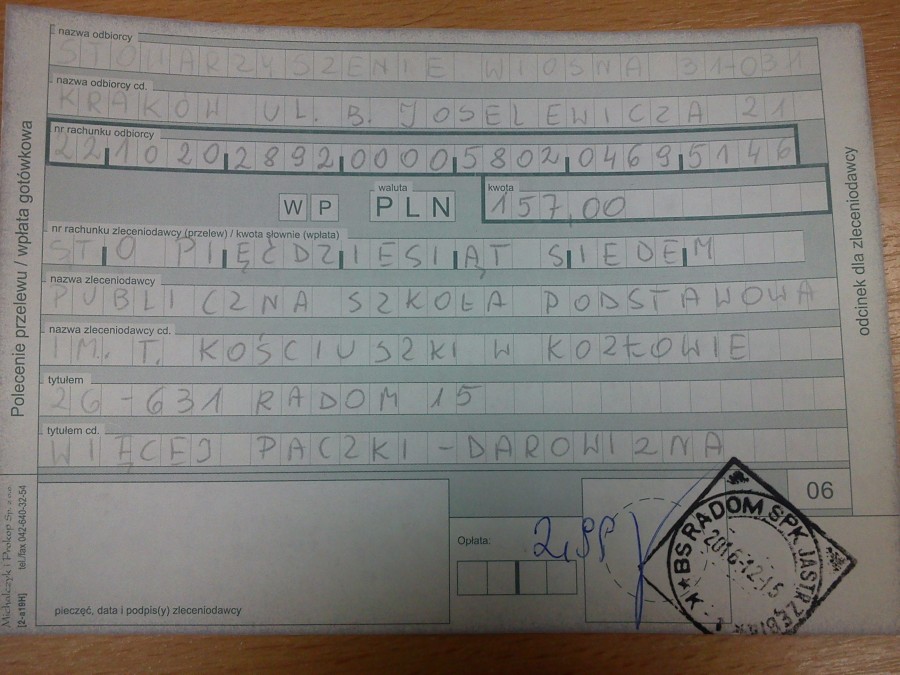 nazwa odbiorcy
STOWARZYSZENIE WIOSNA 31-031
nazwa odbiorcy cd.
KRAKÓW UL. B. JOSELEWICZA 21
nr rachunku odbiorcy
22 1020 2892 0000 5802 0469 5146
W P
waluta
PLN
kwota
157,00
nr rachunku zleceniodawcy (przelew) / kwota słownie (wpłata)
STO PIĘĆDZIESIĄT SIEDEM
nazwa zleceniodawcy
PUBLICZNA SZKOŁA PODSTAWOWA
nazwa zleceniodawcy cd.
IM. T. KOŚCIUSZKI W KOZŁOWIE
tytułem
26-631 RADOM 15
tytułem cd.
WIĘCEJ PACZKI - DAROWIZNA
06
Opłata:
2,99
pieczęć, data i podpis(y) zleceniodawcy
BS RADOM SPK JASTRZĘBIA
2016-12-15
K
Polecenie przelewu / wpłata gotówkowa
odcinek dla zleceniodawcy
Michalczyk i Prokop Sp. z o.o.
tel./fax 042-640-32-54